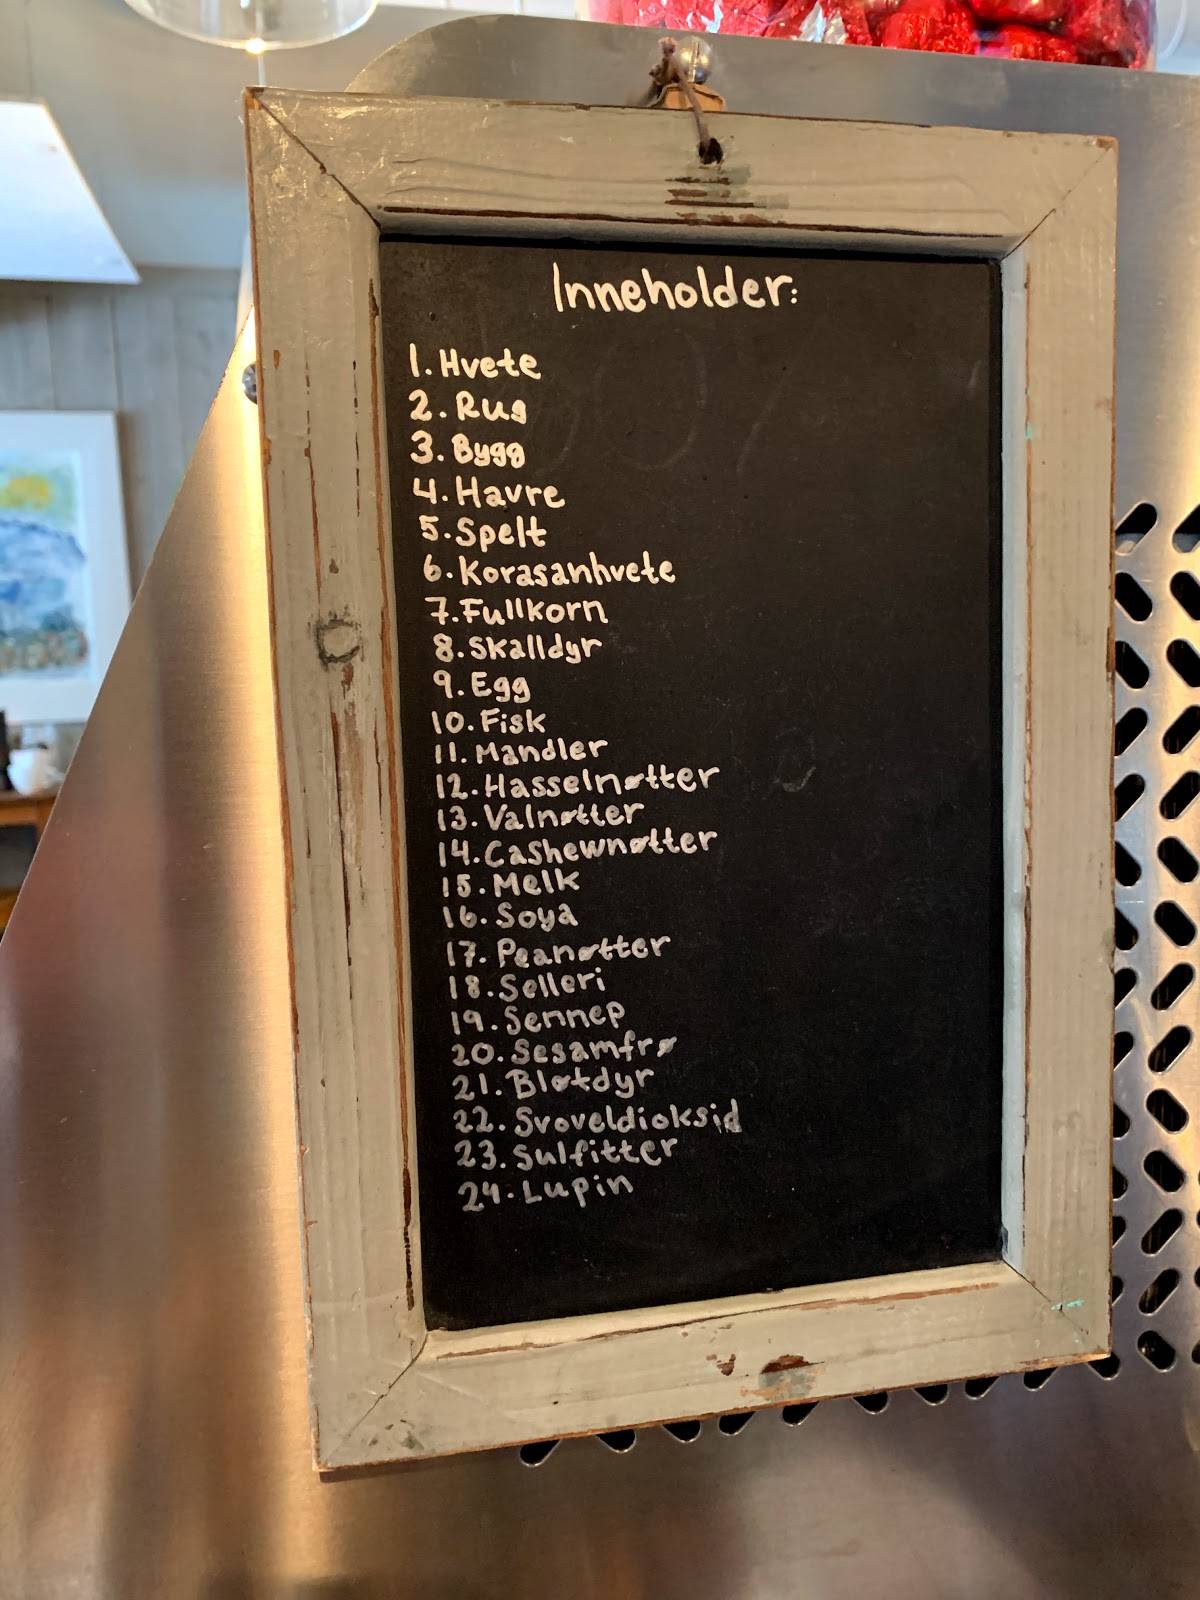 Inneholder:
1. Hvete
2. Rug
3. Bygg
4. Havre
5. Spelt
6. Korasanhvete
7. Fullkorn
8. Skalldyr
9. Egg
10. Fisk
11. Mandler
12. Hasselnøtter
13. Valnøtter
14. Cashewnøtter
15. Melk
16. Soya
17. Peanøtter
18. Selleri
19. Sennep
20. Sesamfrø
21. Bløtdyr
22. Svoveldioksid
23. Sulfitter
24. Lupin